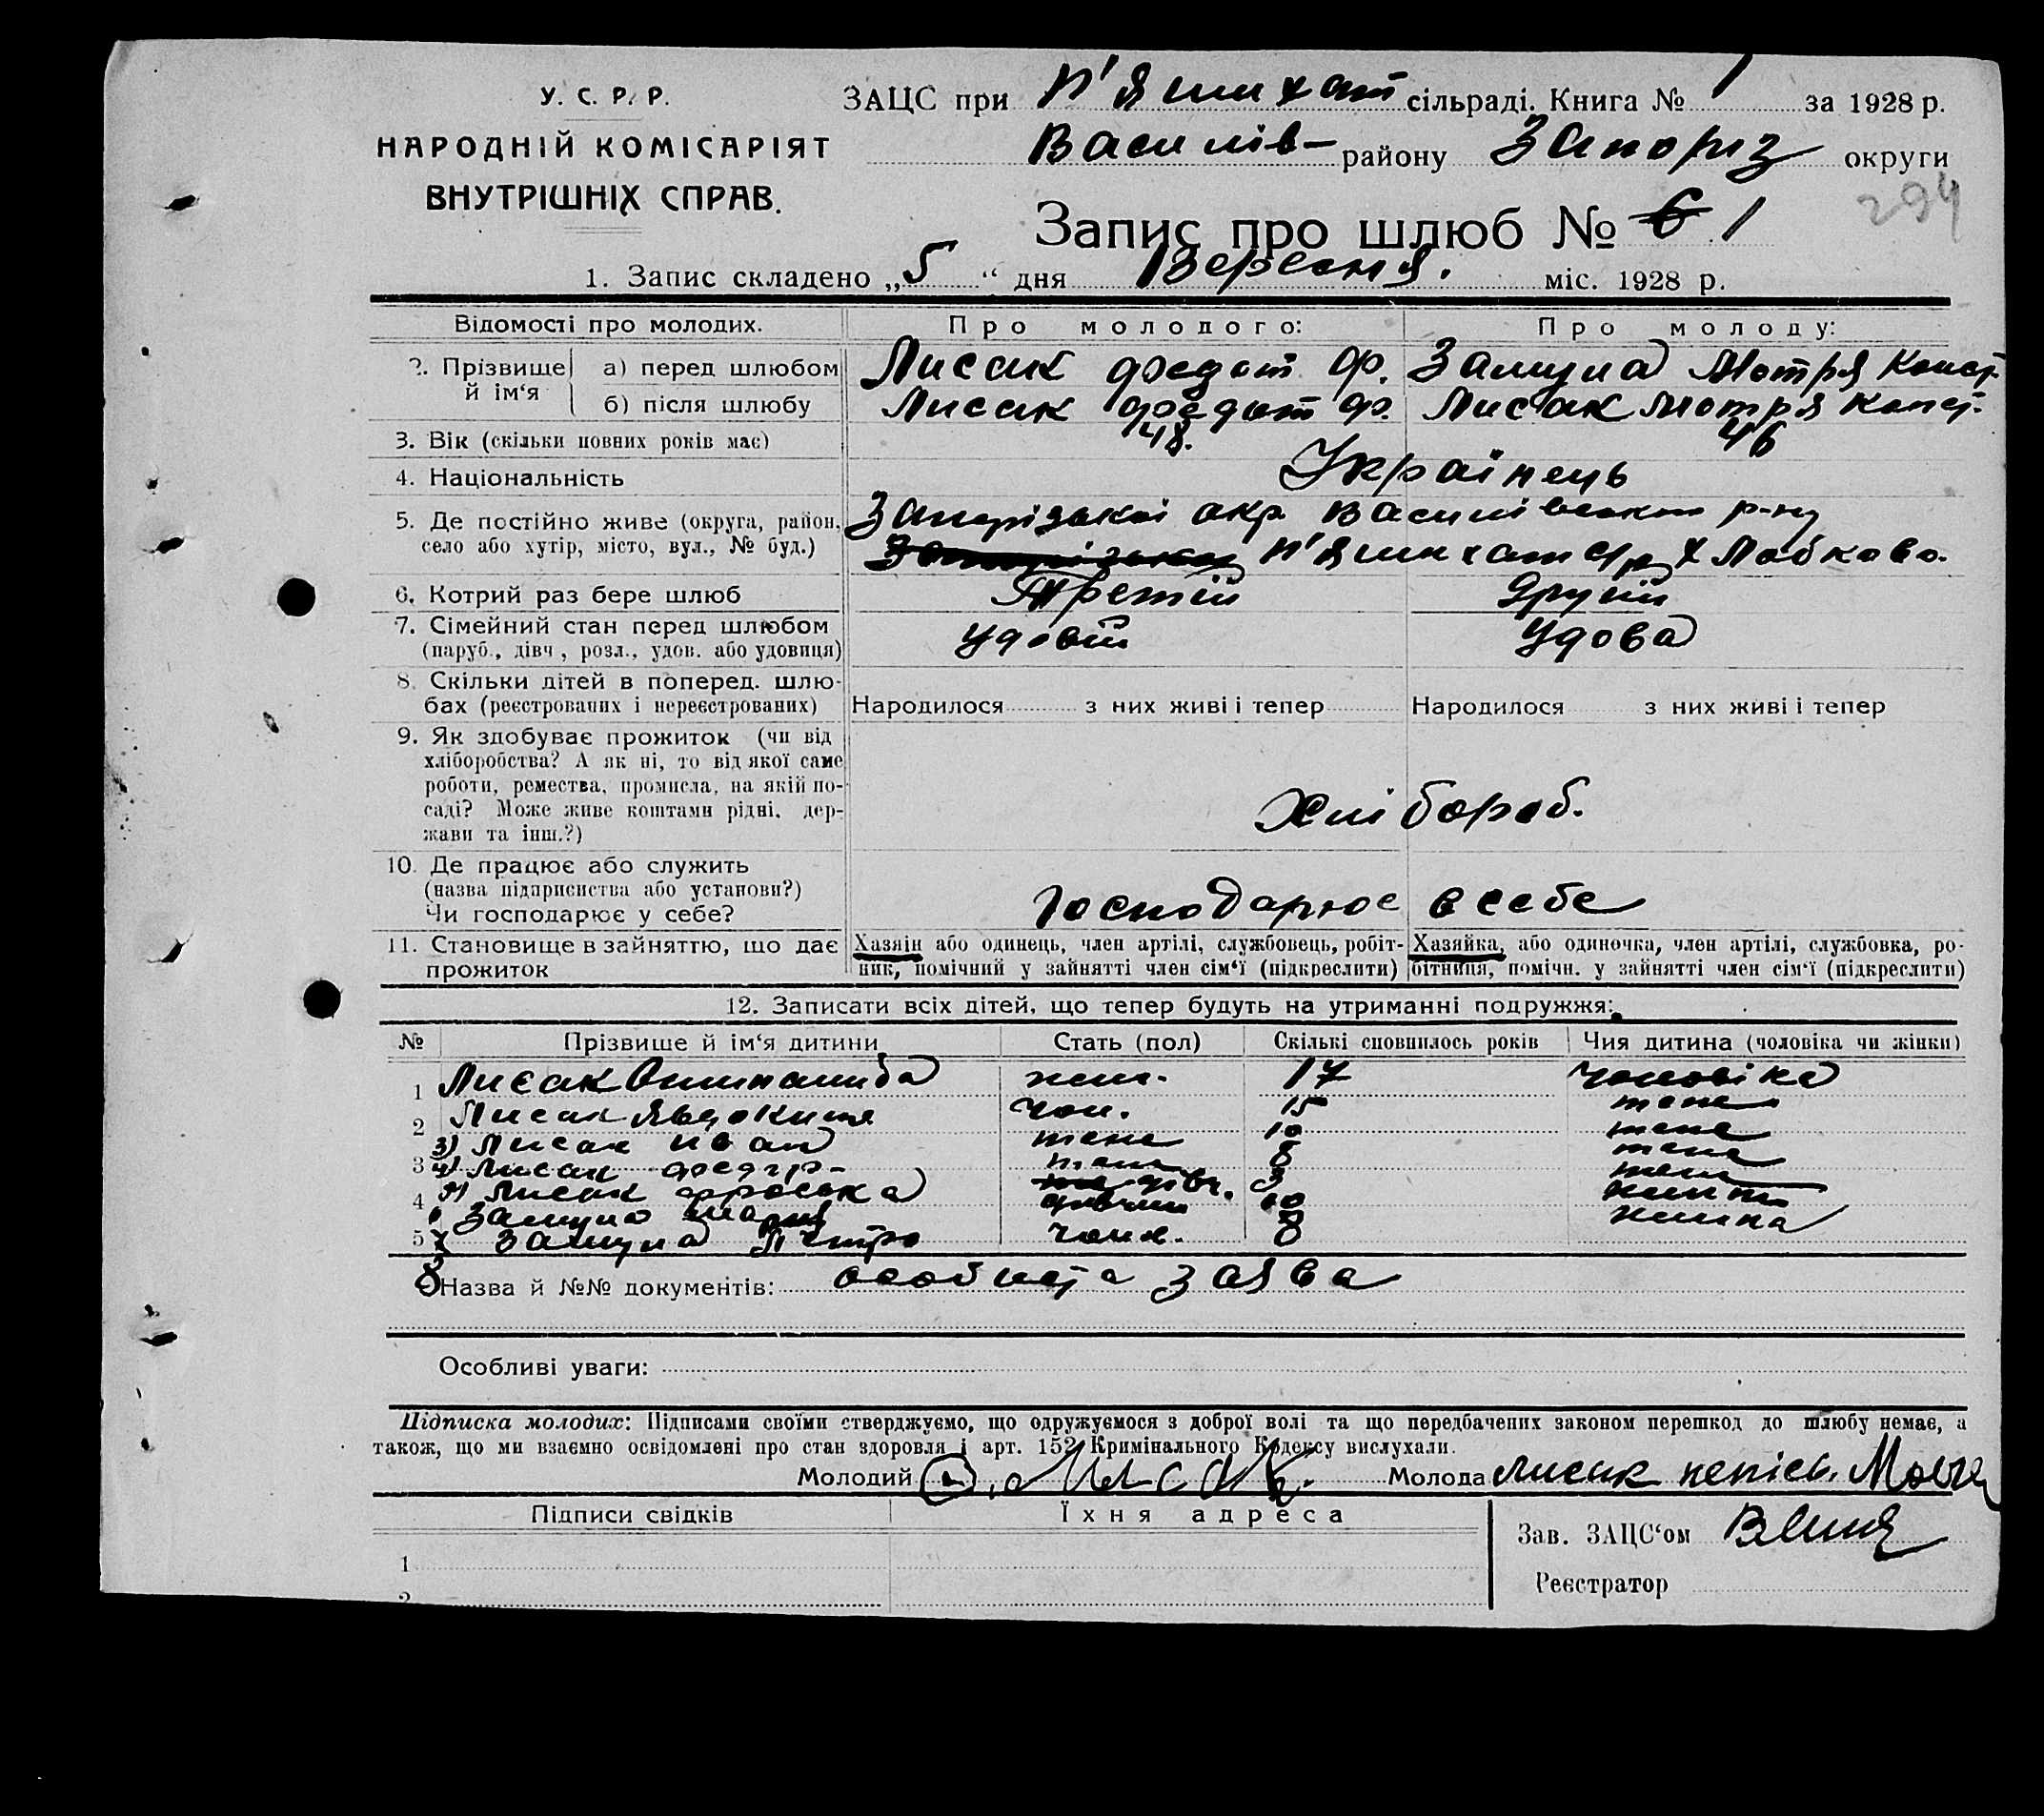 У. С. Р. Р.
НАРОДНІЙ КОМІСАРІЯТ
ВНУТРІШНІХ СПРАВ.
ЗАЦС при П'ятихат сільраді. Книга № 1 за 1928 р.
Василів- району Запоріз округи
294
Запис про шлюб № 6 1
1. Запис складено „5“ дня Вересня. міс. 1928 р.
Відомості про молодих. Про молодого: Про молоду:
2. Прізвище й ім‘я а) перед шлюбом Лисак Федот Ф. Замула Мотря Конст.
б) після шлюбу Лисак Федот Ф. Лисак Мотря Конст.
3. Вік (скільки повних років має) 48. 46
4. Національність Українець
5. Де постійно живе (округа, район, Запорізької окр. Василівського р-ну
село або хутір, місто, вул., № буд.) П'ятихат с/р х Лобково.
6. Котрий раз бере шлюб Третій Другий
7. Сімейний стан перед шлюбом Удовій Удова
(паруб., дівч., розл., удов. або удовиця)
8. Скільки дітей в поперед. шлю-
бах (реєстрованих і нереєстрованих) Народилося з них живі і тепер Народилося з них живі і тепер
9. Як здобуває прожиток (чи від
хліборобства? А як ні, то від якої саме
роботи, ремества, промисла, на якій по-
саді? Може живе коштами рідні, дер- Хлібороб.
жави та інш.?)
10. Де працює або служить
(назва підприємства або установи?) Господарює в себе
Чи господарює у себе?
11. Становище в зайняттю, що дає Хазяїн або одинець, член артілі, службовець, робіт- Хазяйка, або одиночка, член артілі, службовка, ро-
прожиток ник, помічний у зайнятті член сім‘ї (підкреслити) бітниця, помічн. у зайнятті член сім‘ї (підкреслити)
12. Записати всіх дітей, що тепер будуть на утриманні подружжя:
№ Прізвище й ім‘я дитини Стать (пол) Скількі сповнилось років Чия дитина (чоловіка чи жінки)
1 Лисак 17 чоловіка
2 Лисак чол. 15 теже
3) Лисак Иван теже 10 теже
3 4) Лисак теже 8 теже
Лисак Фроська дівч. 3
4 Замула 10
5 Замула Петро чолов. 8 жінка
8
Назва й №№ документів: особиста заява
Особливі уваги:
Підписка молодих: Підписами своїми стверджуємо, що одружуємося з доброї волі та що передбачених законом перешкод до шлюбу немає, а
також, що ми взаємно освідомлені про стан здоровля і арт. 152 Кримінального Кодексу вислухали.
Молодий Лисак. Молода Лисак
Підписи свідків Їхня адреса
Зав. ЗАЦС‘ом
1
Реєстратор
2